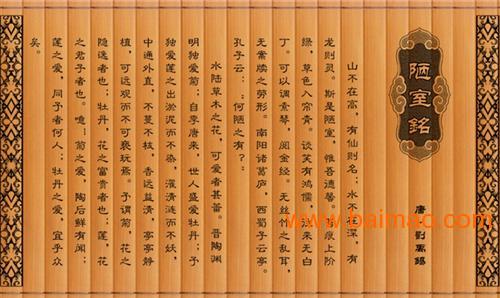 陋室銘
唐 劉禹錫
山不在高,有仙则名;水不在深,有
龙则灵。斯是陋室,惟吾德馨。苔痕上阶
绿,草色入帘青。谈笑有鸿儒,往来无白
丁。可以调素琴,阅金经。无丝竹之乱耳,
无案牍之劳形。南阳诸葛庐,西蜀子云亭。
孔子云:何陋之有?
水陆草木之花,可爱者甚蕃。晋陶渊
明独爱菊;自李唐来,世人盛爱牡丹;予
独爱莲之出淤泥而不染,濯清涟而不妖,
中通外直,不蔓不枝,香远益清,亭亭静
植,可远观而不可亵玩焉。予谓菊,花之
隐逸者也;牡丹,花之富贵者也;莲,花
之君子者也。噫!菊之爱,陶后鲜有闻;
莲之爱,同予者何人;牡丹之爱,宜乎众
矣。
www.baimao.com